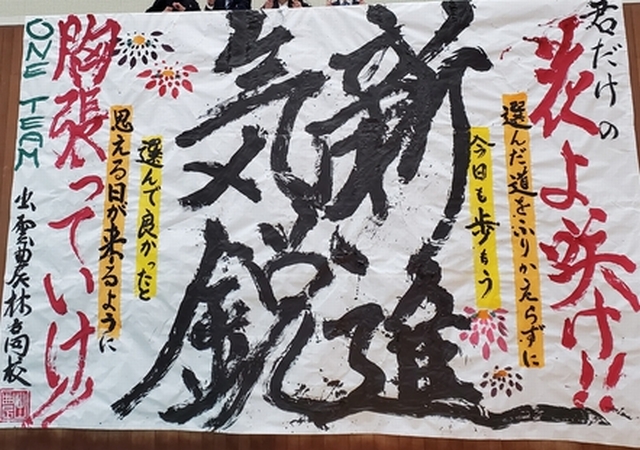 君だけの
花よ咲け!!
選んだ道をふりかえらずに
今日も歩もう
新進
気鋭
選んで良かったと
思える日が来るように
胸張っていけ!!
ONE TEAM
出雲農林高校